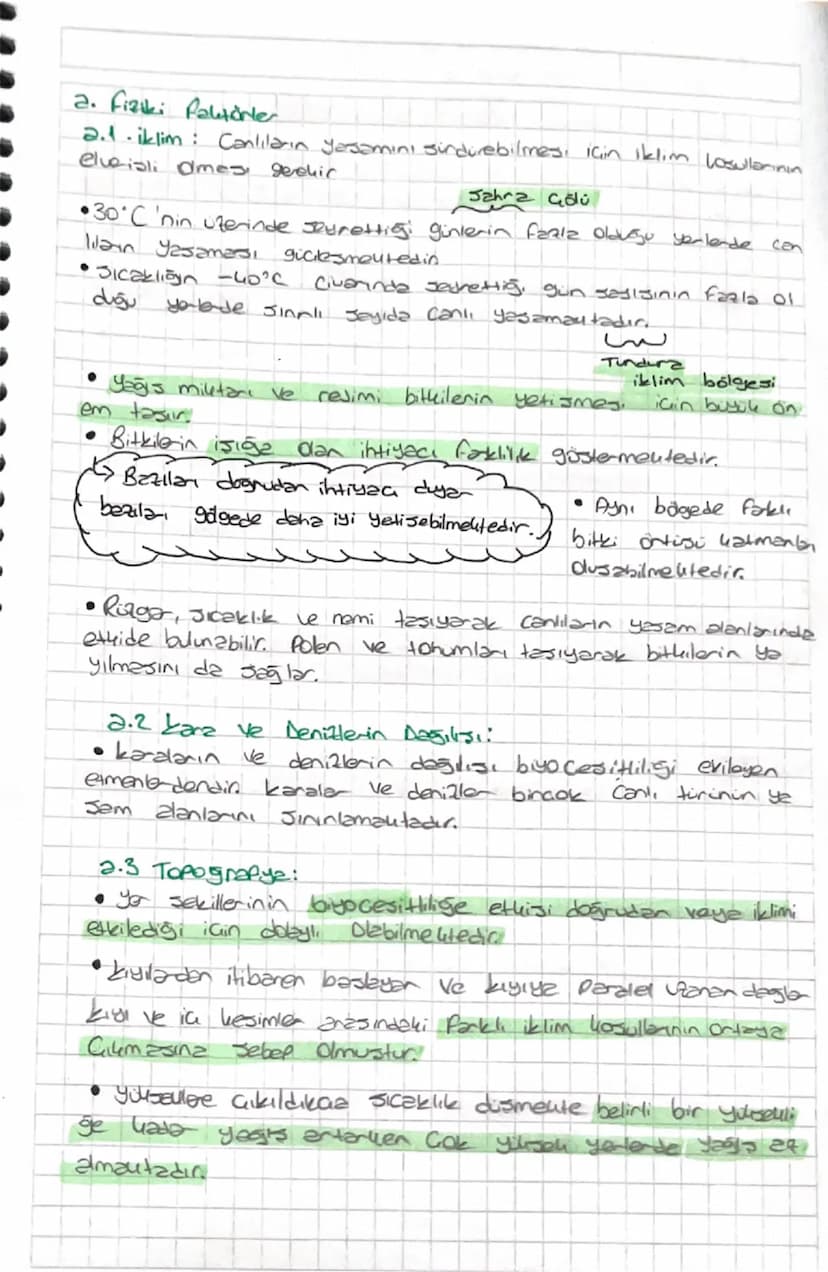 2. Fiziki Faktörler
2.1. iklim: Canlıların yaşamını sürdürebilmesi için iklim koşullarının
elverişli olması gerekir
Sahra Çölü
• 30°C'nin üzerinde seyrettiği günlerin fazla olduğu yerlerde can
lıların yaşaması güçleşmektedir
• Sıcaklığın -40°C civarında seyrettiği gün sayısının fazla ol
duğu yerlerde sınırlı sayıda canlı yaşamaktadır.
Tundura
iklim bölgesi
• Yağış miktarı ve rejimi bitkilerin yetişmesi için büyük ön
em taşır.
• Bitkilerin ışığa olan ihtiyacı farklılık göstermektedir.
↳ Bazıları doğrudan ihtiyacı duyar
bazıları gölgede daha iyi yetişebilmektedir.
• Aynı bögede farklı
bitki örtüsü katmanları
oluşabilmektedir.
• Rüzgar, sıcaklık ve nemi taşıyarak canlıların yaşam alanlarında
etkide bulunabilir. Polen ve tohumları taşıyarak bitkilerin ya
yılmasını da sağlar.
2.2 Kara ve Denizlerin Dağılışı:
• Karaların ve denizlerin dağılışı biyoçeşitliliği etkileyen
etmenlerdendir. Karalar ve denizler birçok canlı türünün ya
şam alanlarını sınırlamaktadır.
2.3 Topografya:
• Yer şekillerinin biyoçeşitliliğe etkisi doğrudan veya iklimi
etkilediği için dolaylı olabilmektedir.
• Kıyılardan itibaren başlayan ve kıyıya paralel uzanan dağlar
kıyı ve iç kesimler arasındaki farklı iklim koşullarının ortaya
çıkmasına sebep olmuştur.
• Yükseklere çıkıldıkça sıcaklık düşmekte belirli bir yüksekli
ğe kadar yağış artarken çok yüksek yerlerde yağış az
almaktadır.